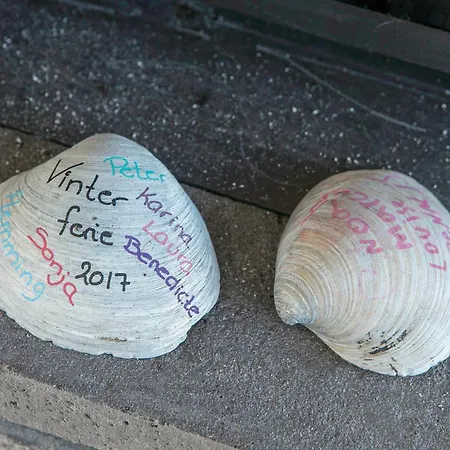 Vinter
ferie
2017
Peter
Karina
Laura
Benedicte
Sonja
Flemming
Noa
Marcus
Louise